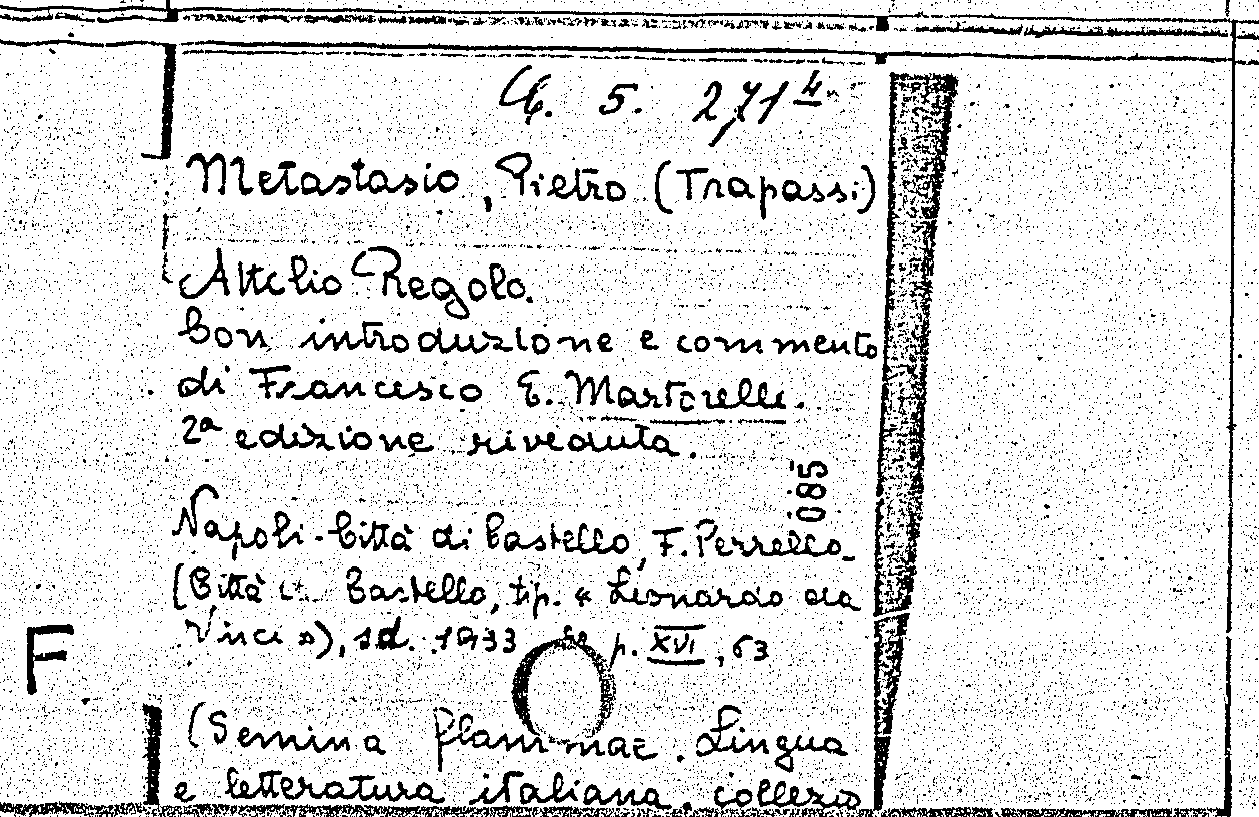 5. 271 4
Metastasio, Pietro (Trapassi)
Attilio Regolo.
Con introduzione e commento
di Francesco E. Martorelli.
2ª edizione riveduta.
085
Napoli-Città di Castello, F. Perrella
(Città di Castello, tip. « Leonardo da
Vinci »), sd. 1933 p. XVI, 63
F
(Semina flammae. Lingua
e letteratura italiana. collezio